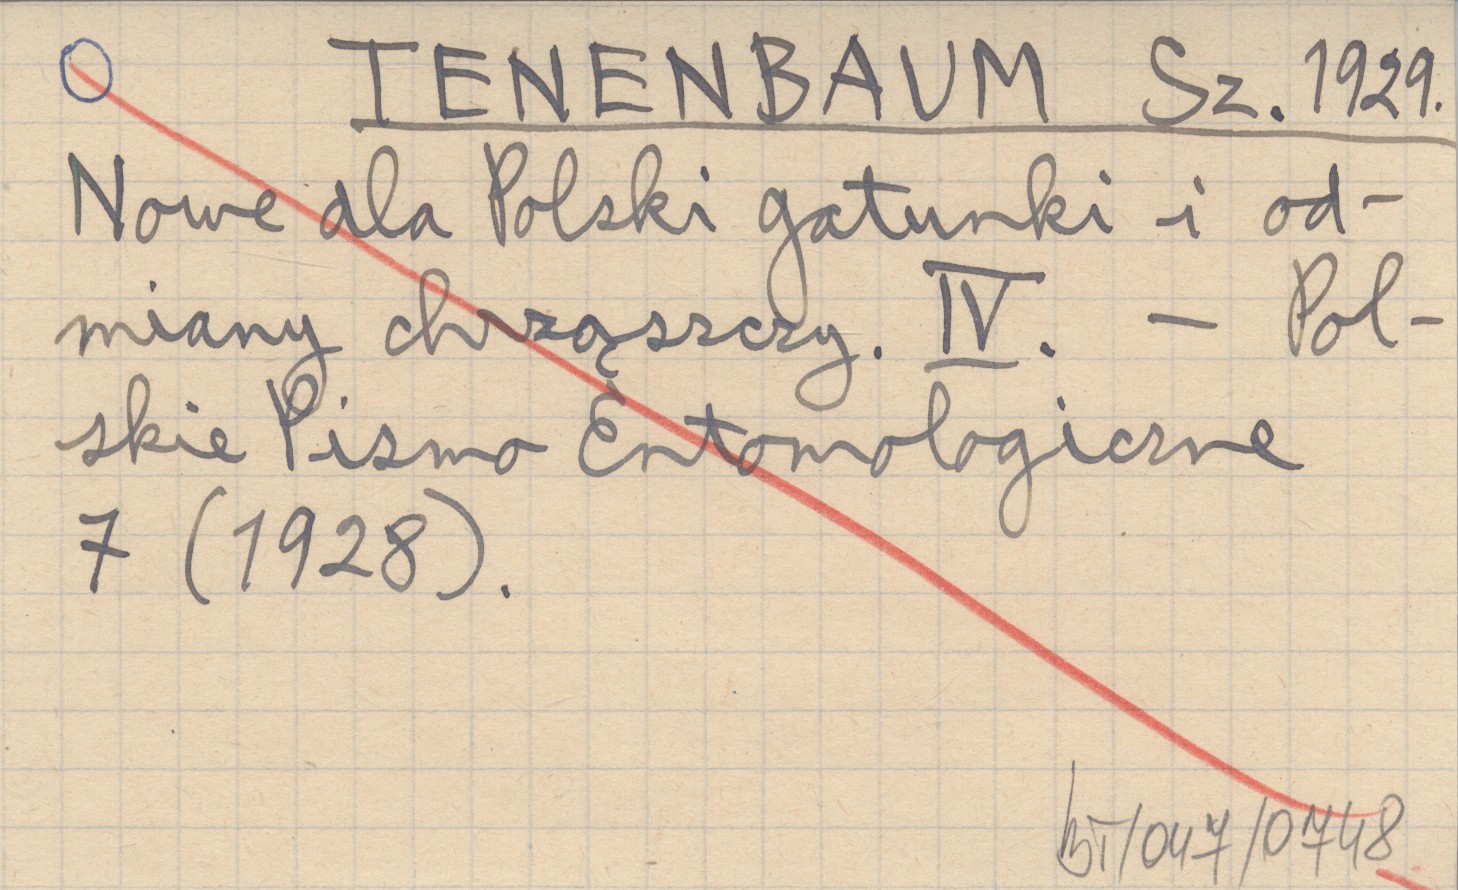 TENENBAUM Sz. 1929.
Nowe dla Polski gatunki i od-
miany chrząszczy. IV. — Pol-
skie Pismo Entomologiczne
7 (1928).
BT/047/0748